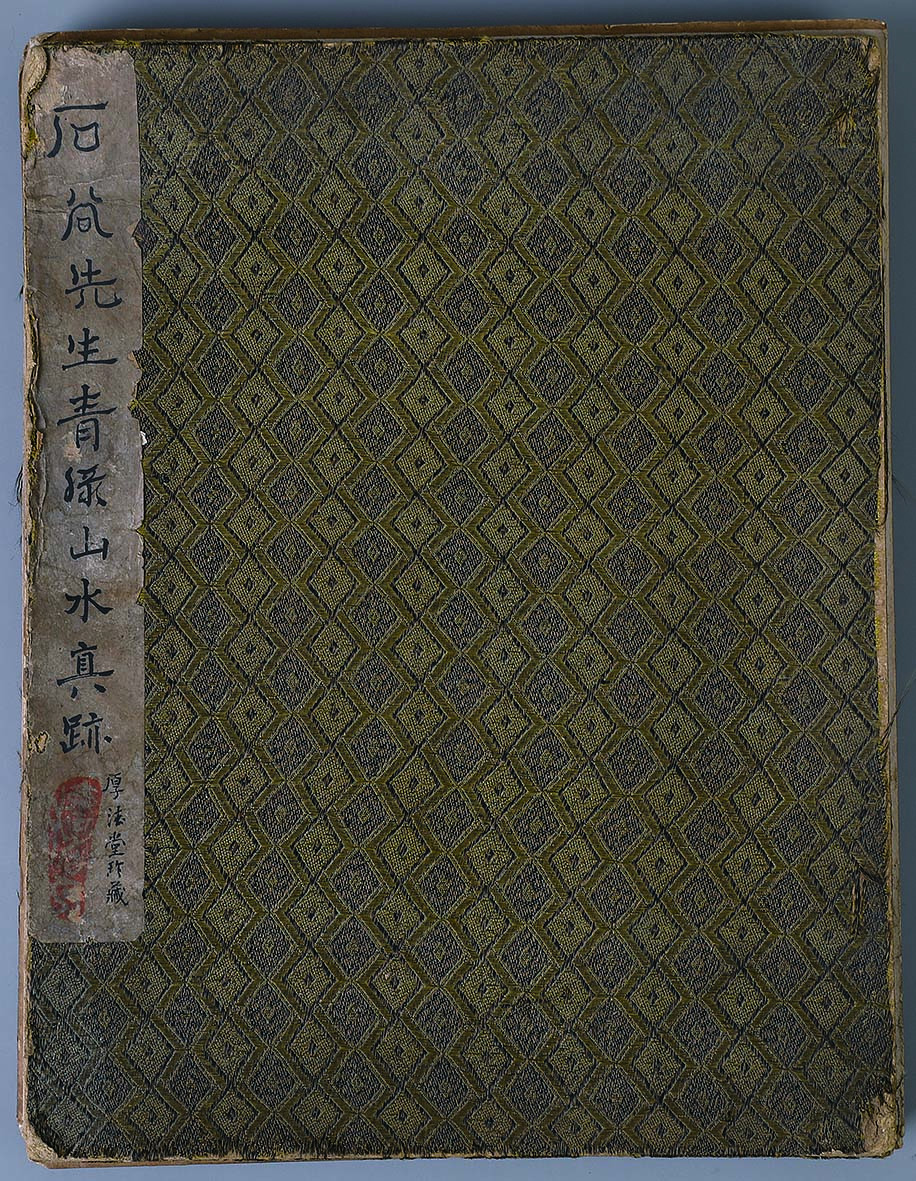 石谷先生青綠山水真跡
厚法堂珍藏